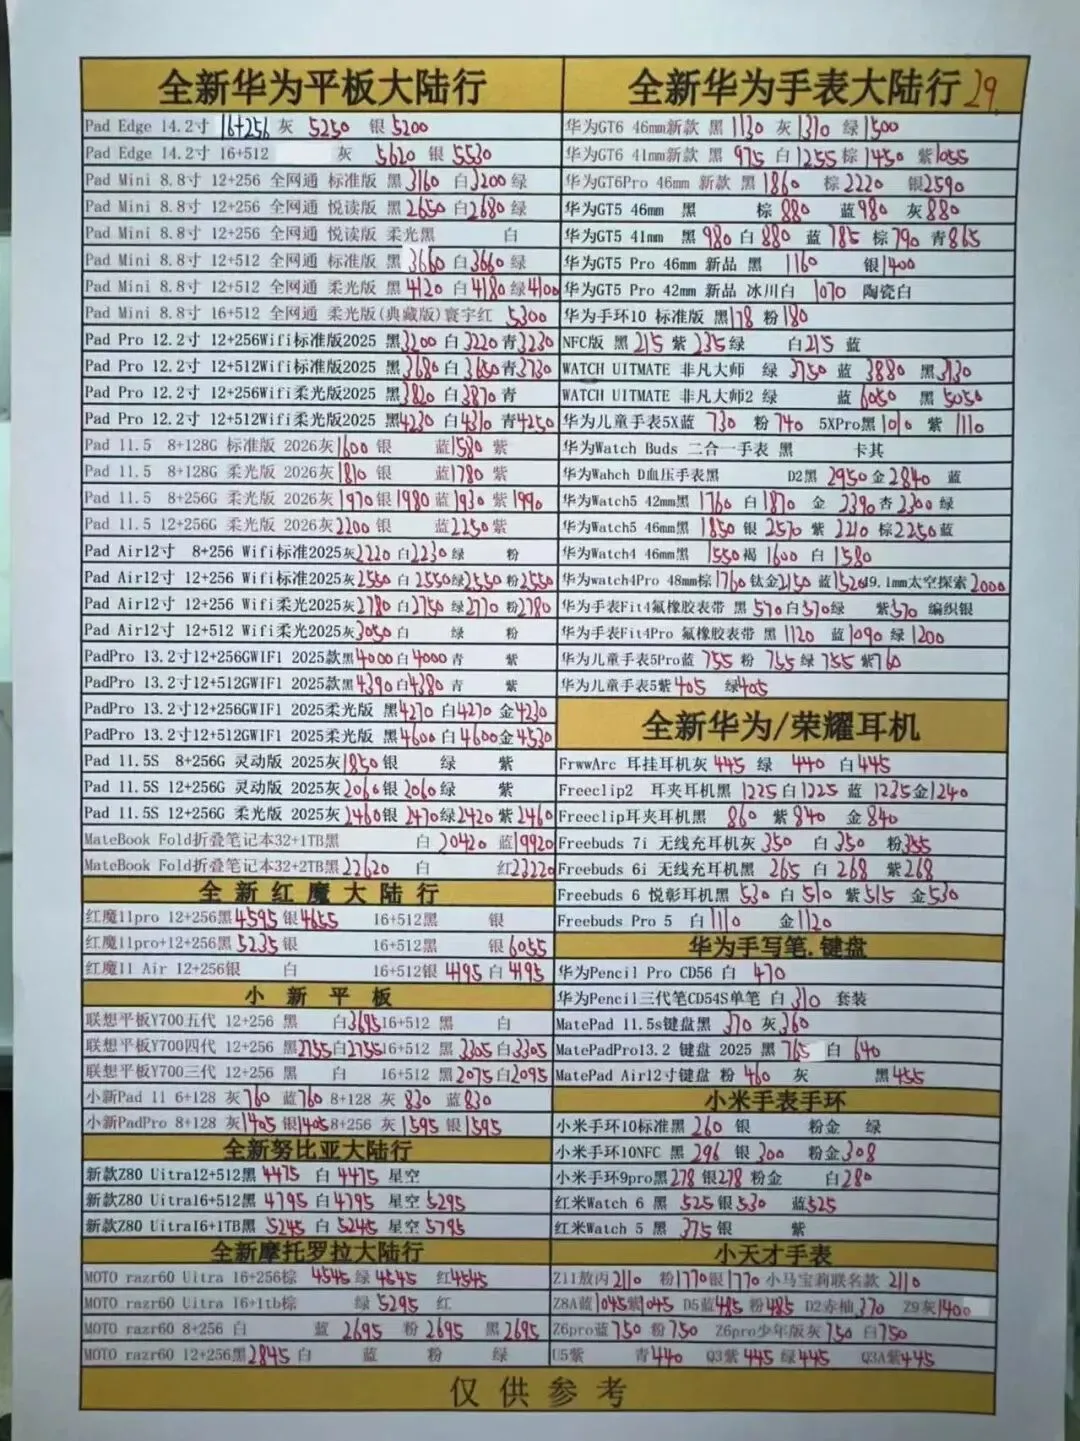 全新华为平板大陆行
Pad Edge 14.2寸 16+256 灰 5250 银 5200
Pad Edge 14.2寸 16+512 灰 5620 银 5530
Pad Mini 8.8寸 12+256 全网通 标准版 黑 3160 白 3200 绿
Pad Mini 8.8寸 12+256 全网通 悦读版 黑 2650 白 2680 绿
Pad Mini 8.8寸 12+256 全网通 悦读版 柔光黑 白
Pad Mini 8.8寸 12+512 全网通 标准版 黑 3660 白 3660 绿
Pad Mini 8.8寸 12+512 全网通 柔光版 黑 4120 白 4180 绿 4100
Pad Mini 8.8寸 16+512 全网通 柔光版(典藏版)寰宇红 5300
Pad Pro 12.2寸 12+256Wifi标准版2025 黑 3200 白 3220 青 3230
Pad Pro 12.2寸 12+512Wifi标准版2025 黑 3680 白 3650 青 3730
Pad Pro 12.2寸 12+256Wifi柔光版2025 黑 3820 白 3870 青
Pad Pro 12.2寸 12+512Wifi柔光版2025 黑 4230 白 4310 青 4250
Pad 11.5 8+128G 标准版 2026灰 1600 银 蓝 1580 紫
Pad 11.5 8+128G 柔光版 2026灰 1810 银 蓝 1780 紫
Pad 11.5 8+256G 柔光版 2026灰 1970 银 1980 蓝 1930 紫 1990
Pad 11.5 12+256G 柔光版 2026灰 2200 银 蓝 2250 紫
Pad Air12寸 8+256 Wifi标准2025灰 2220 白 2230 绿 粉
Pad Air12寸 12+256 Wifi标准2025灰 2550 白 2550 绿 2550 粉 2550
Pad Air12寸 12+256 Wifi柔光2025灰 2780 白 2750 绿 2770 粉 2780
Pad Air12寸 12+512 Wifi柔光2025灰 3050 白 绿 粉
PadPro 13.2寸12+256GWIF1 2025款黑 4000 白 4000 青 紫
PadPro 13.2寸12+512GWIF1 2025款黑 4390 白 4380 青 紫
PadPro 13.2寸12+256GWIF1 2025柔光版 黑 4270 白 4270 金 4230
PadPro 13.2寸12+512GWIF1 2025柔光版 黑 4600 白 4600 金 4530
Pad 11.5S 8+256G 灵动版 2025灰 1850 银 绿 紫
Pad 11.5S 12+256G 灵动版 2025灰 2060 银 2060 绿 紫
Pad 11.5S 12+256G 柔光版 2025灰 2460 银 2470 绿 2420 紫 2460
MateBook Fold折叠笔记本32+1TB黑 白 20420 蓝 19920
MateBook Fold折叠笔记本32+2TB黑 22620 白 红 23220
全新红魔大陆行
红魔11pro 12+256黑 4595 银 4655 16+512黑 银
红魔11pro+12+256黑 5235 银 16+512黑 银 6055
红魔11 Air 12+256银 白 16+512银 4195 白 4195
小新平板
联想平板Y700五代 12+256 黑 白 3695 16+512 黑 白
联想平板Y700四代 12+256 黑 2755 白 2755 16+512 黑 3305 白 3305
联想平板Y700三代 12+256 黑 白 16+512 黑 2075 白 2095
小新Pad 11 6+128 灰 760 蓝 760 8+128 灰 830 蓝 830
小新PadPro 8+128 灰 1405 银 1405 8+256 灰 1595 银 1595
全新努比亚大陆行
新款Z80 Uitra12+512黑 4475 白 4475 星空
新款Z80 Uitra16+512黑 4795 白 4795 星空 5295
新款Z80 Uitra16+1TB黑 5245 白 5245 星空 5795
全新摩托罗拉大陆行
MOTO razr60 Ultra 16+256棕 4545 绿 4645 红 4545
MOTO razr60 Ultra 16+1tb棕 绿 5295 红
MOTO razr60 8+256 白 蓝 2695 粉 2695 黑 2695
MOTO razr60 12+256黑 2845 白 蓝 粉 绿
全新华为手表大陆行 29
华为GT6 46mm新款 黑 1130 灰 1310 绿 1500
华为GT6 41mm新款 黑 975 白 1255 棕 1450 紫 1055
华为GT6Pro 46mm 新款 黑 1860 棕 2220 银 2590
华为GT5 46mm 黑 棕 880 蓝 980 灰 880
华为GT5 41mm 黑 980 白 880 蓝 785 棕 790 青 865
华为GT5 Pro 46mm 新品 黑 1160 银 1400
华为GT5 Pro 42mm 新品 冰川白 1070 陶瓷白
华为手环10 标准版 黑 178 粉 180
NFC版 黑 215 紫 235 绿 白 215 蓝
WATCH UITMATE 非凡大师 绿 3750 蓝 3880 黑 3130
WATCH UITMATE 非凡大师2 绿 蓝 6050 黑 5050
华为儿童手表5X蓝 730 粉 740 5XPro黑 1010 紫 1110
华为Watch Buds 二合一手表 黑 卡其
华为Wahch D血压手表黑 D2黑 2950 金 2840 蓝
华为Watch5 42mm黑 1760 白 1870 金 2390 杏 2300 绿
华为Watch5 46mm黑 1850 银 2570 紫 2210 棕 2250 蓝
华为Watch4 46mm黑 1550 褐 1600 白 1580
华为watch4Pro 48mm棕 1760 钛金 2150 蓝 1520 49.1mm太空探索 2000
华为手表Fit4氟橡胶表带 黑 570 白 570 绿 紫 570 编织银
华为手表Fit4Pro 氟橡胶表带 黑 1120 蓝 1090 绿 1200
华为儿童手表5Pro蓝 755 粉 755 绿 755 紫 760
华为儿童手表5紫 405 绿 405
全新华为/荣耀耳机
FrwwArc 耳挂耳机灰 445 绿 440 白 445
Freeclip2 耳夹耳机黑 1225 白 1225 蓝 1235 金 1240
Freeclip耳夹耳机黑 860 紫 840 金 840
Freebuds 7i 无线充耳机灰 350 白 350 粉 355
Freebuds 6i 无线充耳机黑 265 白 268 紫 268
Freebuds 6 悦彰耳机黑 530 白 510 紫 515 金 530
Freebuds Pro 5 白 1110 金 1120
华为手写笔.键盘
华为Pencil Pro CD56 白 470
华为Pencil三代笔CD54S单笔 白 310 套装
MatePad 11.5s键盘黑 370 灰 360
MatePadPro13.2 键盘 2025 黑 765 白 640
MatePad Air12寸键盘 粉 460 灰 黑 455
小米手表手环
小米手环10标准黑 260 银 粉金 绿
小米手环10NFC 黑 296 银 300 粉金 308
小米手环9pro黑 278 银 278 粉金 白 280
红米Watch 6 黑 525 银 530 蓝 525
红米Watch 5 黑 375 银 紫
小天才手表
Z11放丙 2110 粉 1770 银 1770 小马宝莉联名款 2110
Z8A蓝 1045 紫 1045 D5蓝 485 粉 485 D2赤柚 370 Z9灰 1400
Z6pro蓝 750 粉 750 Z6pro少年版灰 750 白 750
U5紫 青 440 Q3紫 445 绿 445 Q3A紫 445
仅供参考